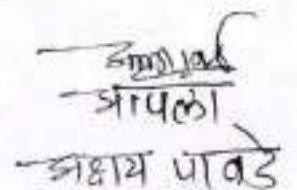 आपला
अक्षय पावडे